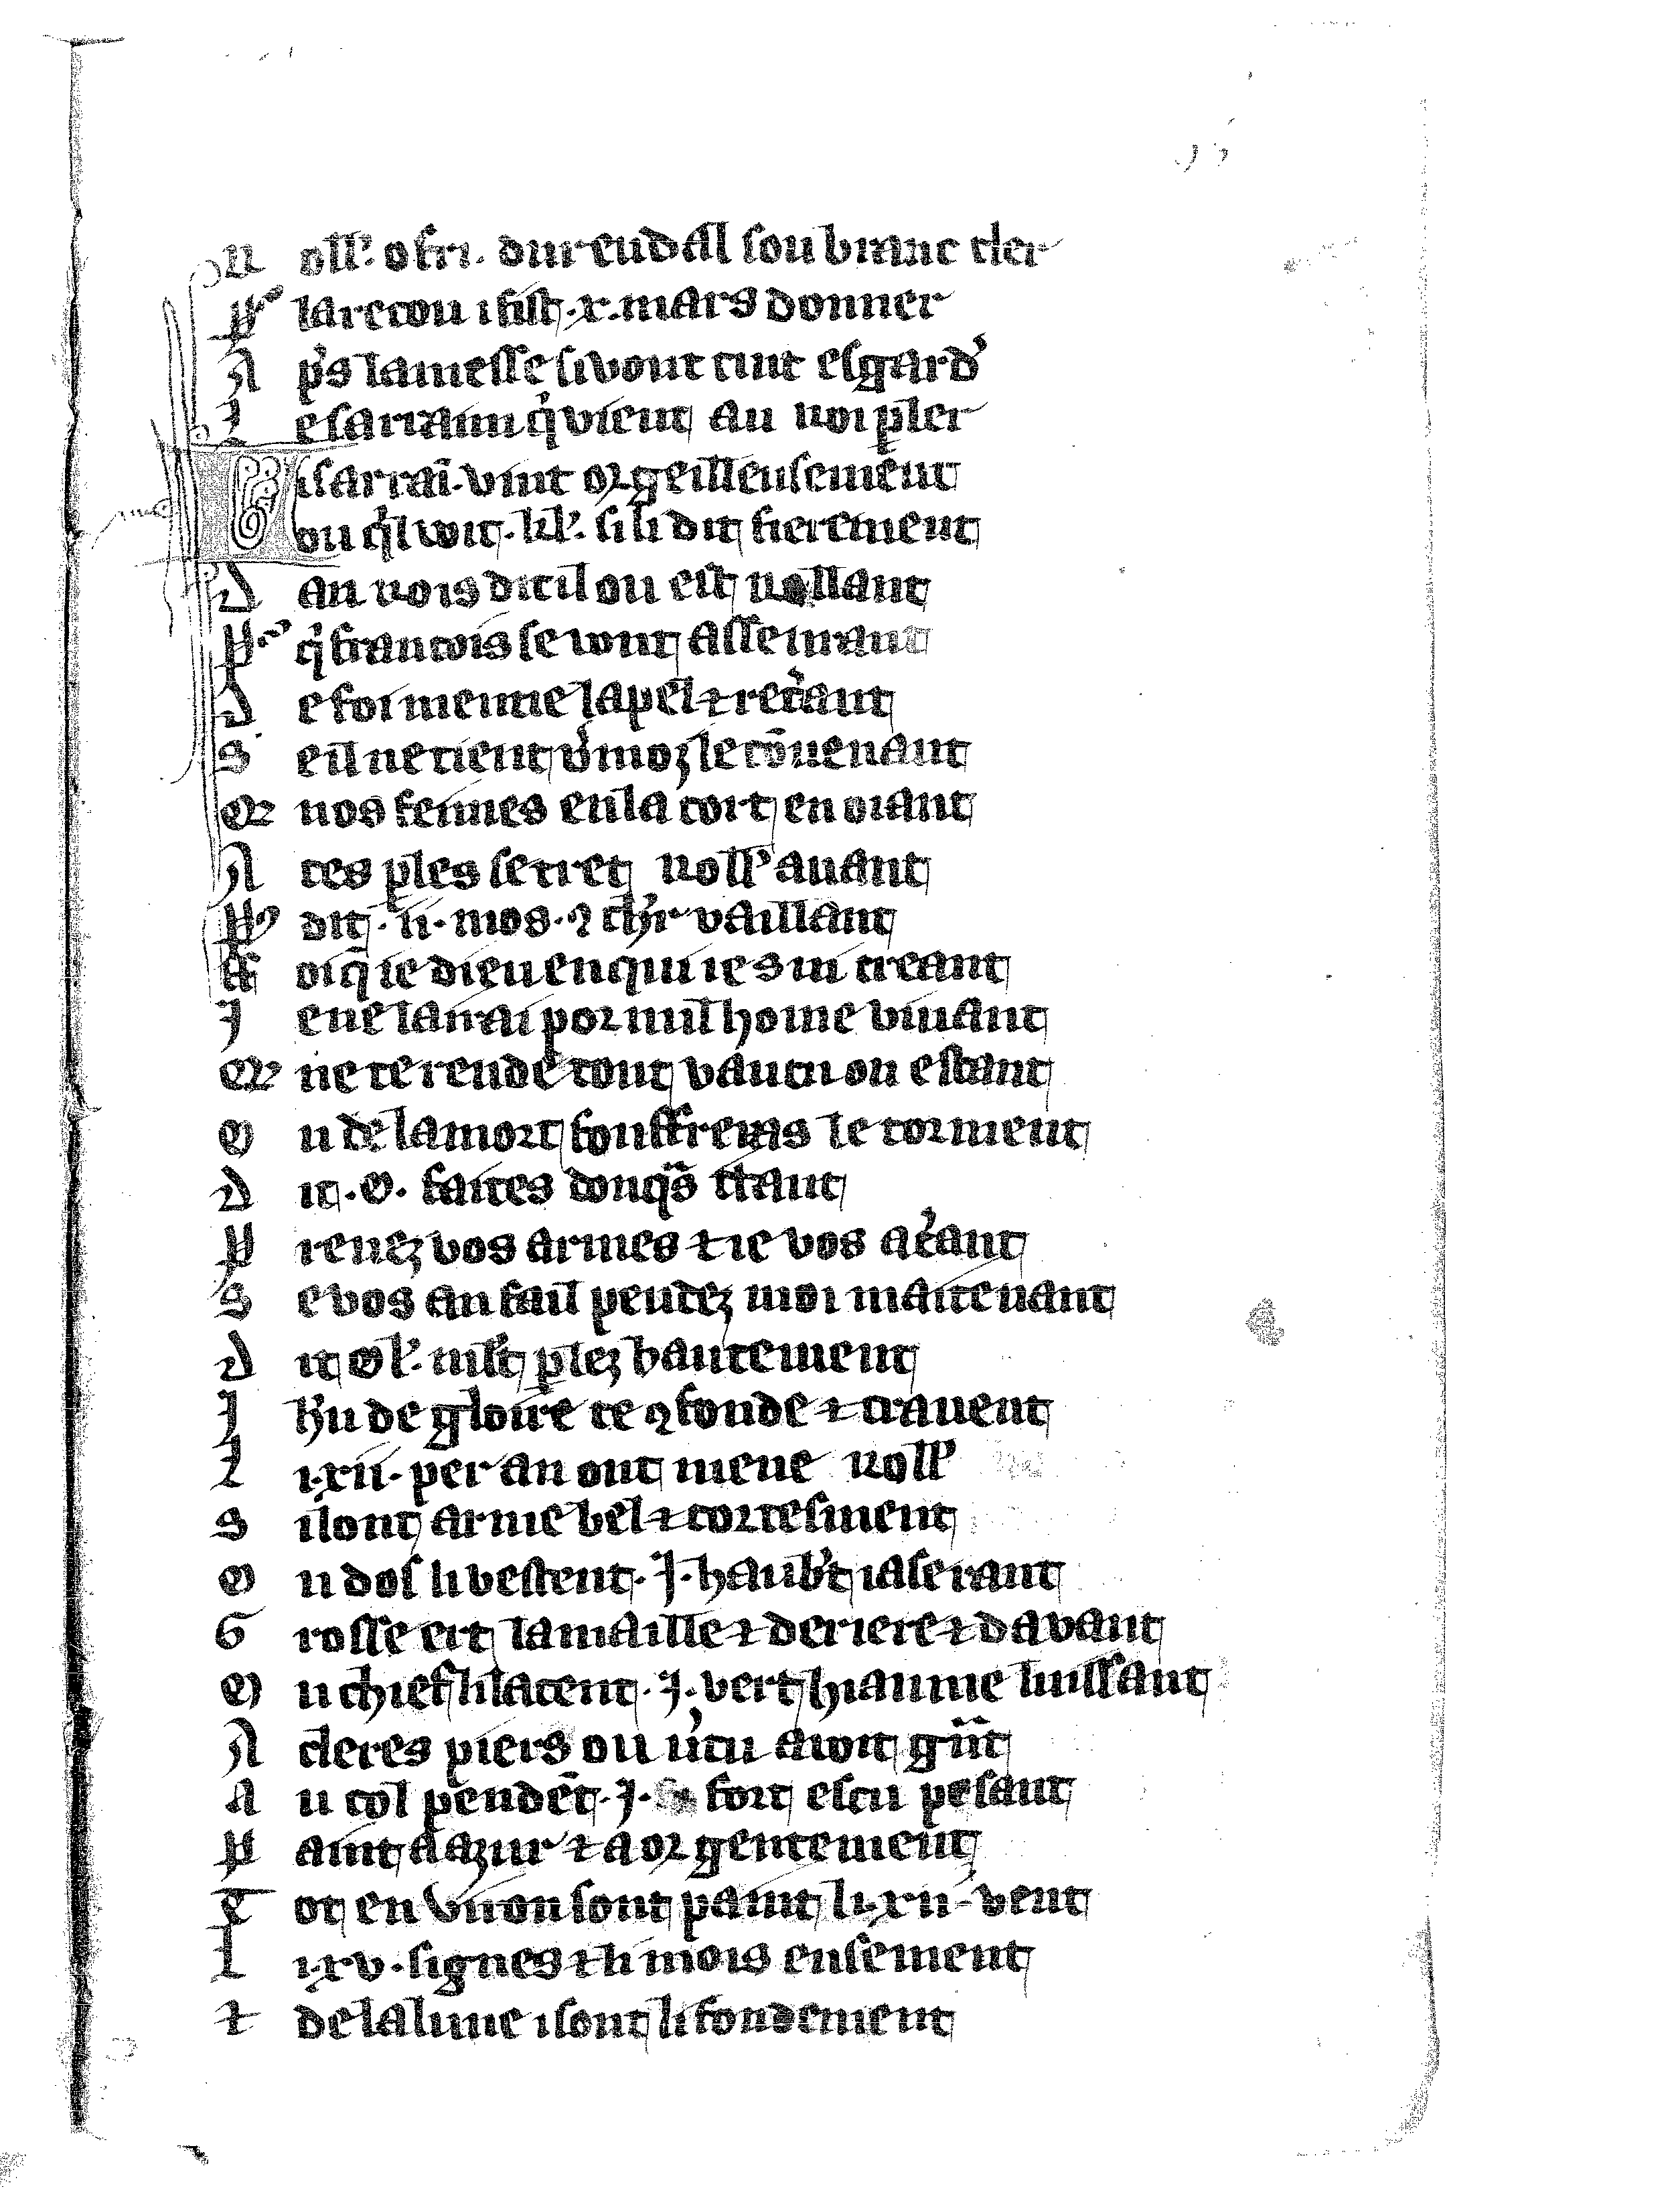 R oll'. ofri. durendal son branc cler
P' la recou i fist .x. mars donner
A p's la messe si vont tuit esgard'
L e sarrazin q' vient au roi pler
L i sarrai. vint orgeilleusement
ou q'l voit .kl'. si li dit fierement
D an rois dit il ou est rollant
P' q' francois se vont asseurant
D e formenne la pel et retant
S e il ne tient v' moz le couenant
Et nos femes en la cort en oiant
A ces ples se tret roll' auant
P' dit. li. mos. 9 ch'r vaillant
F oi q ie dieu en qui ie sui creant
J e ne lairai por nul home viuant
Et ne te rende tout vaincu ou estant
O u de la mort souffreras le torment
D it .O. faites donq's tant
P renez vos armes et ie vos atant
S e vos an fail pendez moi maitenant
D it Ol'. nilt plez hautement
J h'u de gloire te 9fonde et crauent
L i .xii. per an ont mene roll'
S i l ont arme bel et cortesment
O u dos li vestent .J. haub't iaserant
G rosse ert la maille et deriere et davant
O u chief li lacent .J. vert hiaume luissant
A cleres piers ou v'tu auoit g̃nt
A u col pendet .J. fort escu pesant
P aint a azur et a or gentement
T ot en viron sont paint li .xii. vent
L i .xv. signes et li mois ensement
Et de la lune i sont li fondement